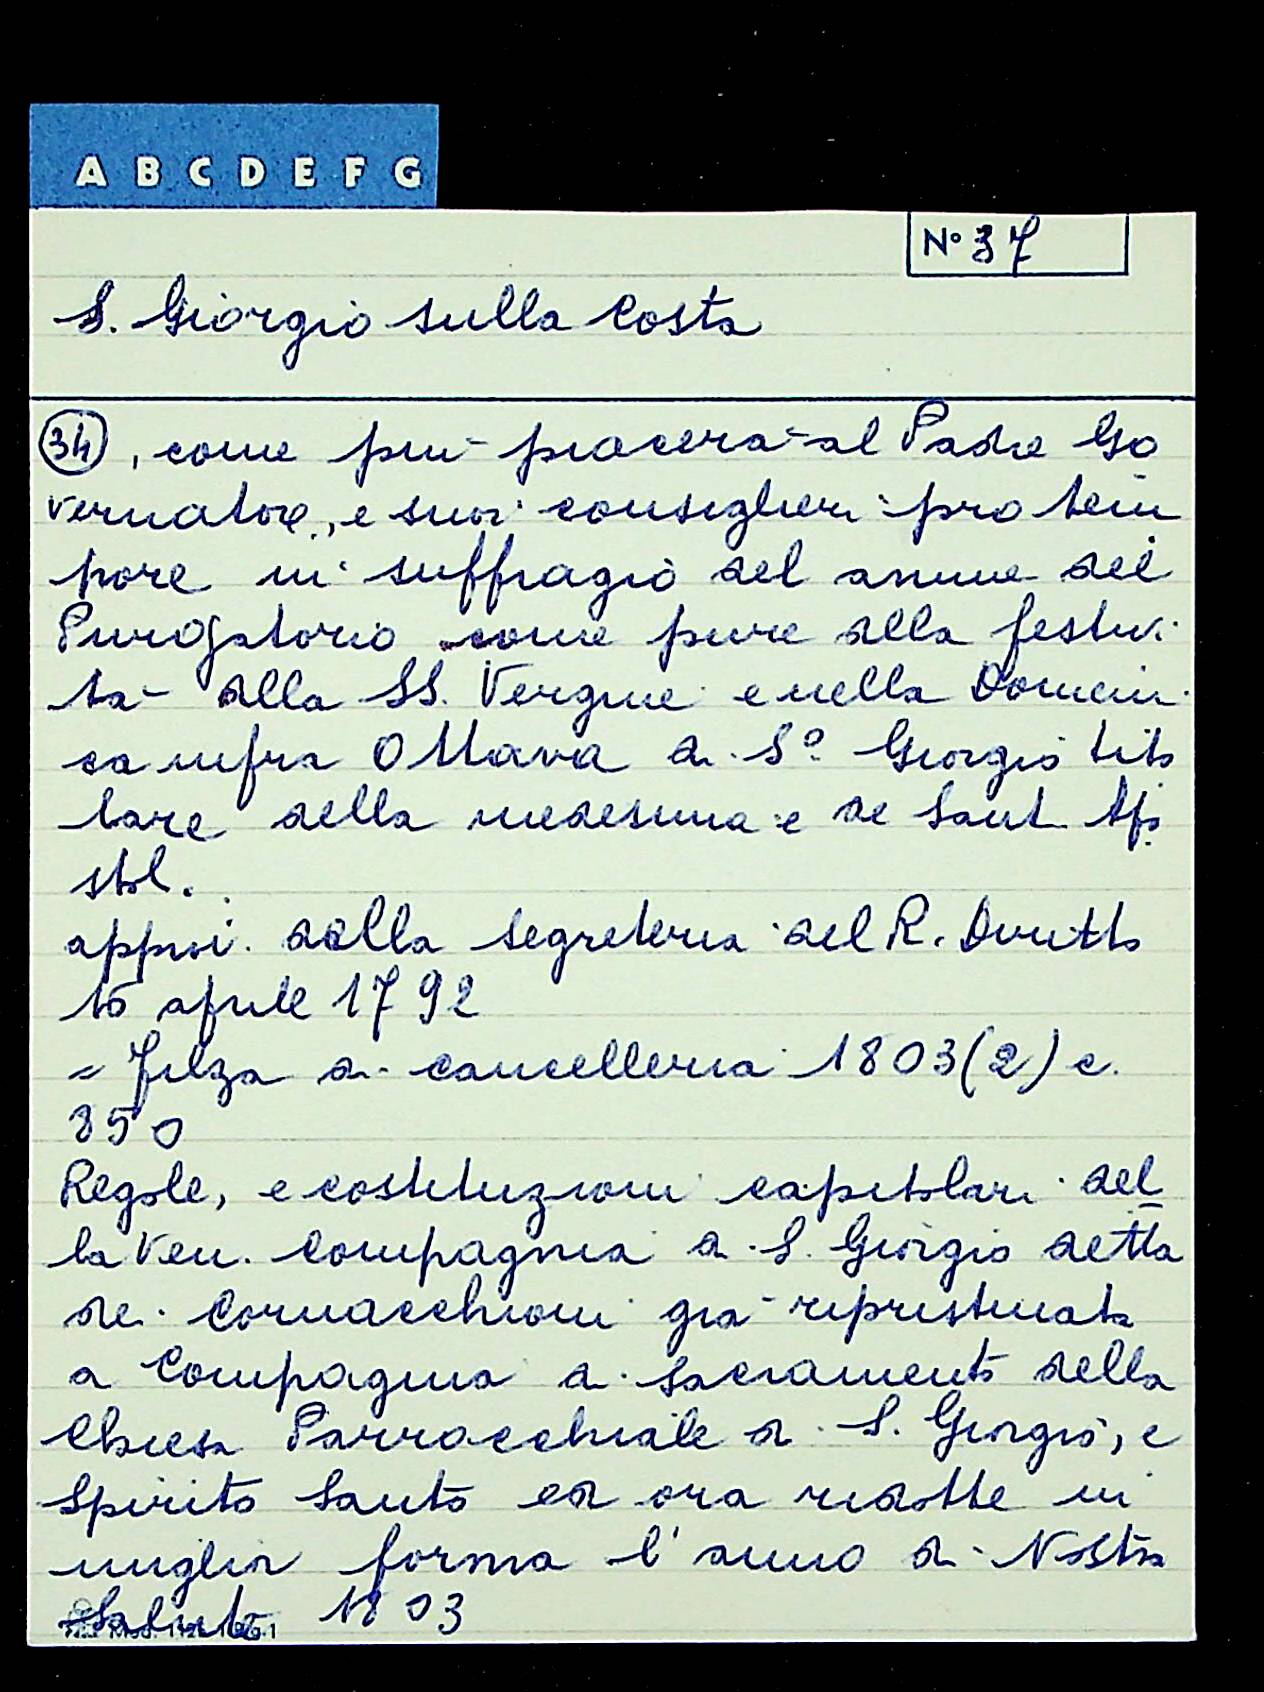 A B C D E F G
N° 37
S. Giorgio sulla Costa
(34), come più piacerà al Padre Go
vernatore, e suoi consiglieri pro tem
pore in suffragio del anime del
Purgatorio come pure alla festivi
tà della SS. Vergine e nella Domeni
ca infra Ottava di S° Giorgio tito
lare della medesima e de Sant. Apo
stol.
approv. dalla segreteria del R. Diritto
16 aprile 1792
= Filza di cancelleria 1803 (2) c.
350
Regole, e costituzioni capitolari del
la Ven. Compagnia di S. Giorgio detta
dei Cornacchioni già ripristinata
a Compagnia di sacramento della
Chiesa Parrocchiale di S. Giorgio, e
Spirito Santo ed ora ridotte in
miglior forma l'anno di Nostra
Salute 1803